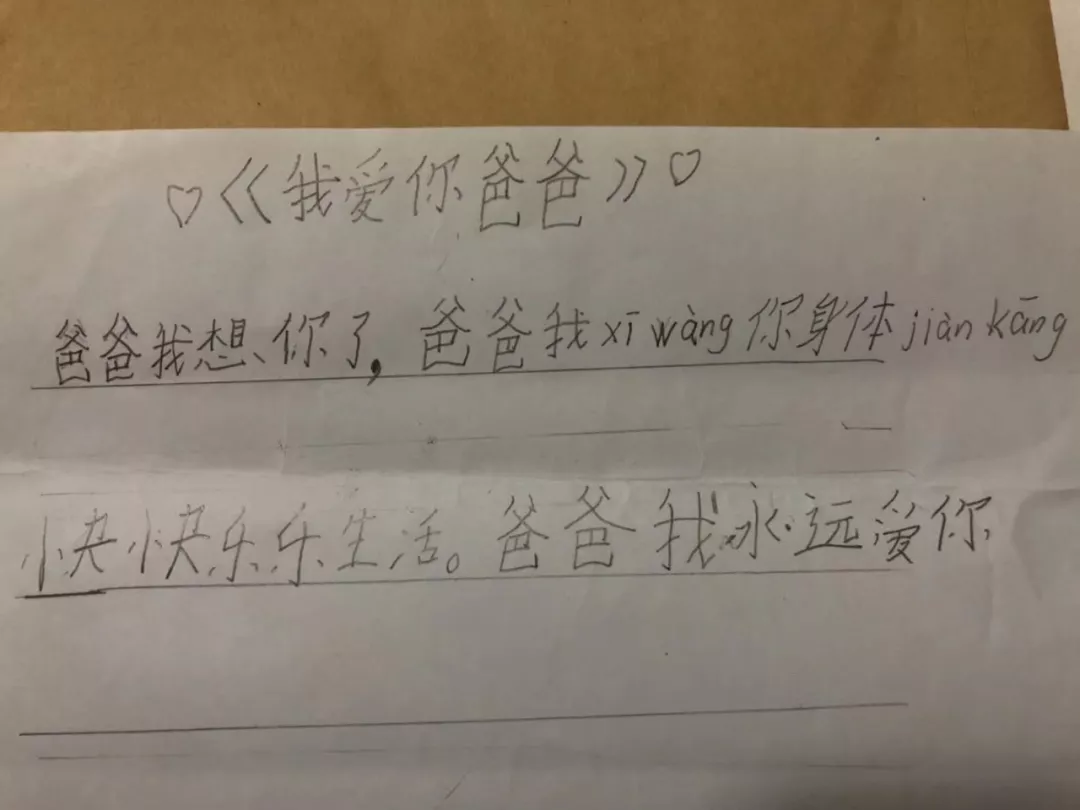 ♡《我爱你爸爸》♡
爸爸我想你了，爸爸我xī wàng你身体jiàn kāng
快快乐乐生活。爸爸我永远爱你